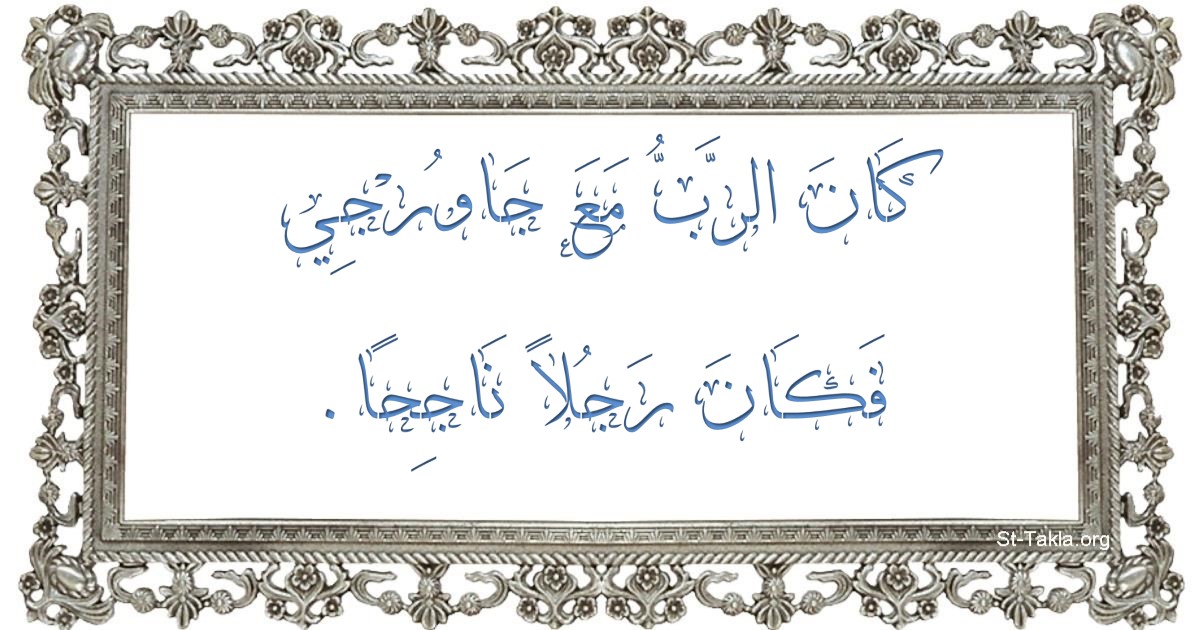 كَانَ الرَّبُّ مَعَ جَاورُجِي
فَكَانَ رَجُلاً نَاجِحًا .
St-Takla.org